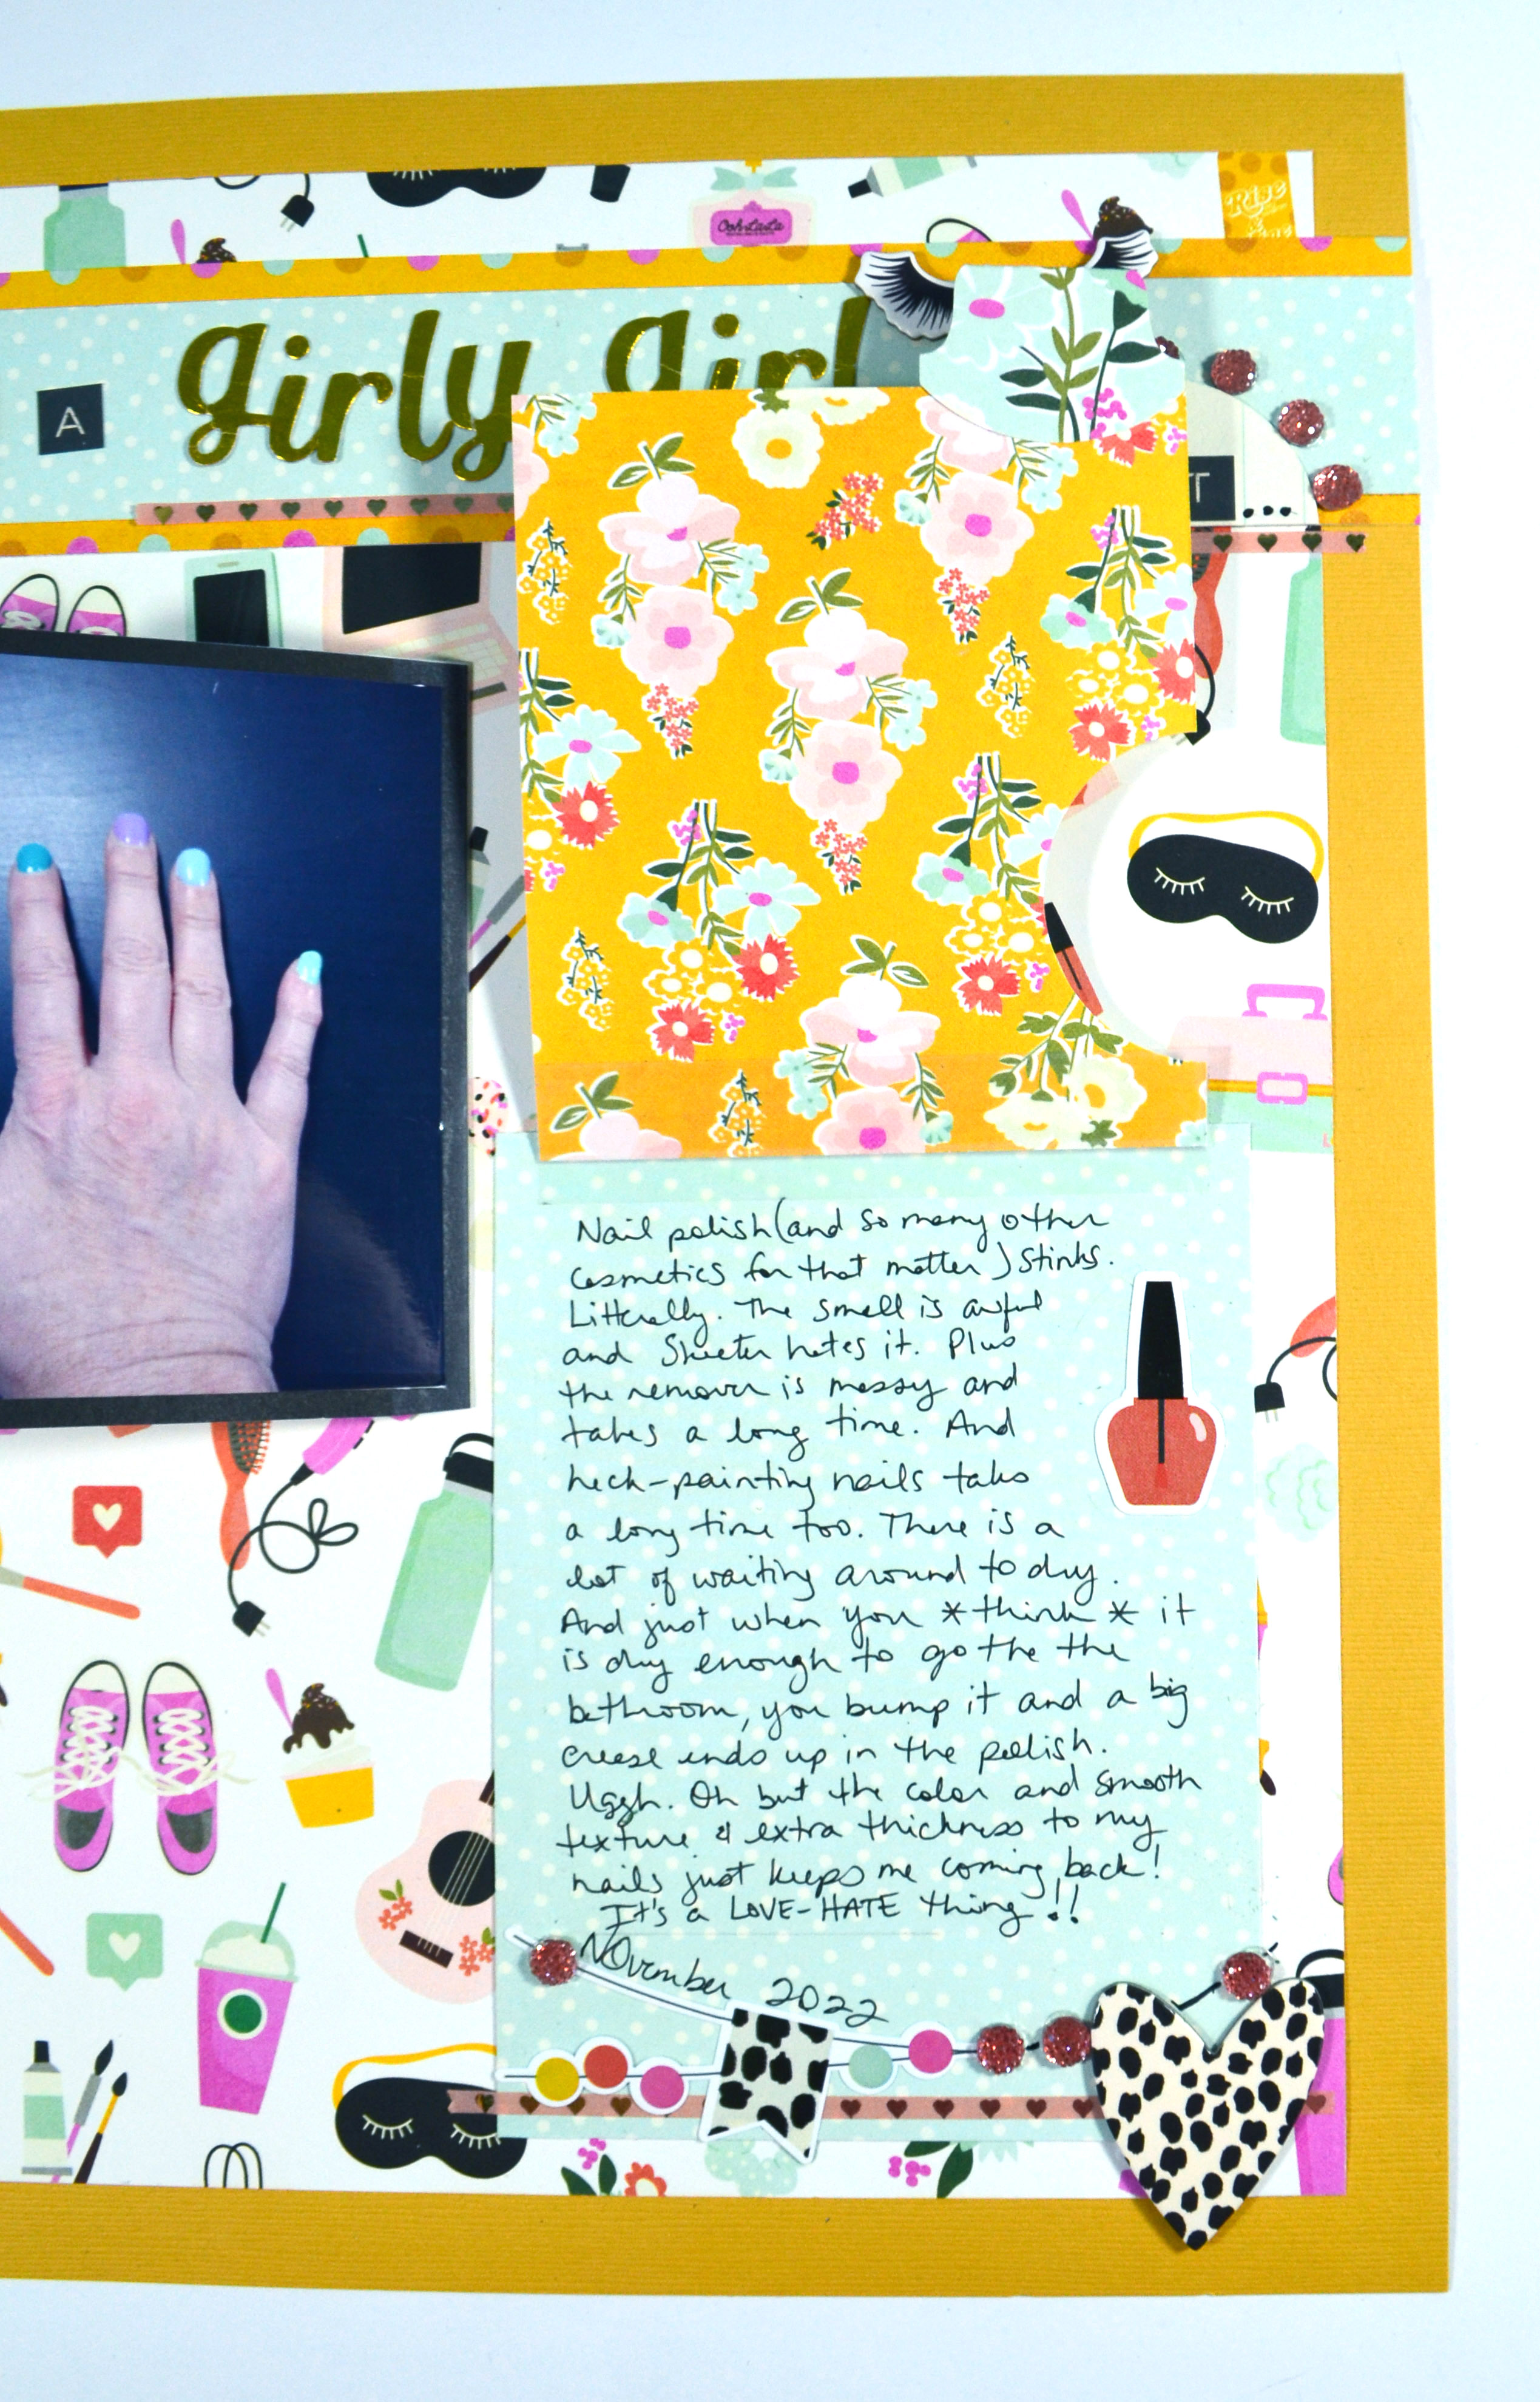 Ooh-La-La
Rise
&
A
girly girl
T
Nail polish (and so many other
cosmetics for that matter) stinks.
Litterally. The smell is awful
and Skeeter hates it. Plus
the remover is messy and
takes a long time. And
heck-painting nails take
a long time too. There is a
lot of waiting around to dry.
And just when you *think* it
is dry enough to go the the
bathroom, you bump it and a big
crease ends up in the polish.
Uggh. Oh but the color and smooth
texture & extra thickness to my
nails just keeps me coming back!
It's a LOVE-HATE thing!!
November 2022